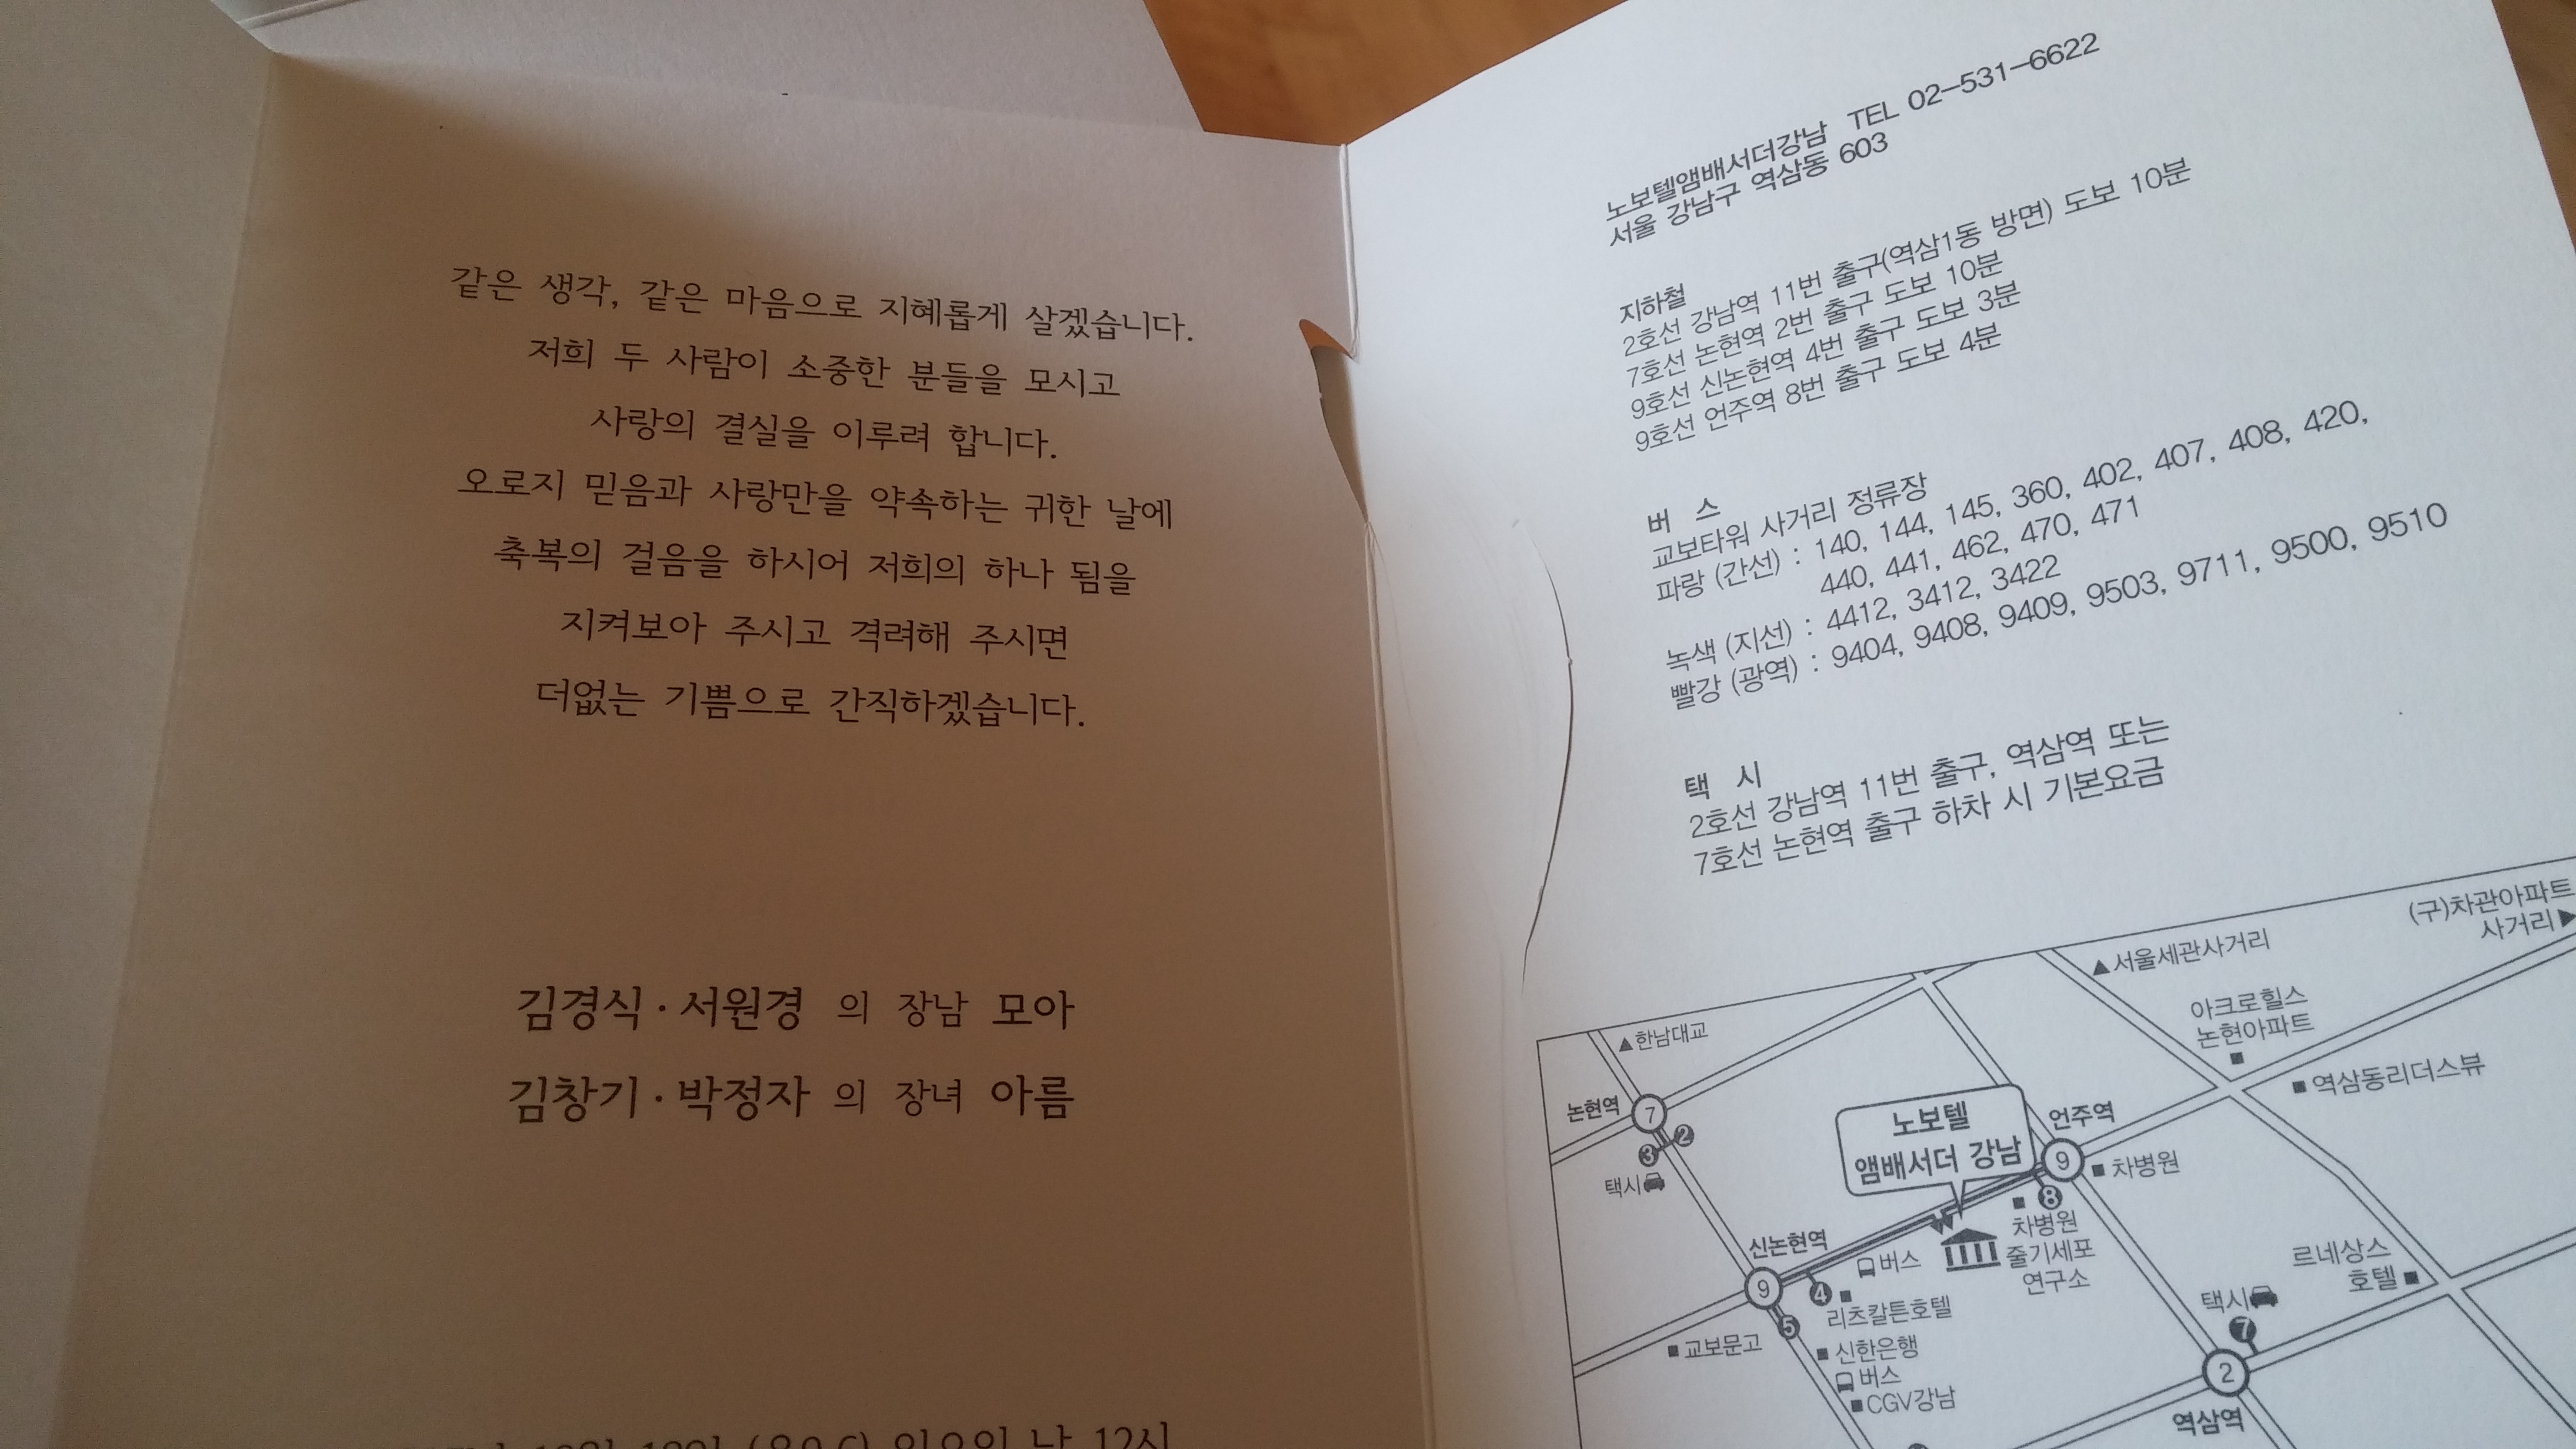 같은 생각, 같은 마음으로 지혜롭게 살겠습니다.
저희 두 사람이 소중한 분들을 모시고
사랑의 결실을 이루려 합니다.
오로지 믿음과 사랑만을 약속하는 귀한 날에
축복의 걸음을 하시어 저희의 하나 됨을
지켜보아 주시고 격려해 주시면
더없는 기쁨으로 간직하겠습니다.
김경식·서원경 의 장남 모아
김창기·박정자 의 장녀 아름
12시
노보텔앰배서더강남 TEL 02-531-6622
서울 강남구 역삼동 603
지하철
2호선 강남역 11번 출구(역삼1동 방면) 도보 10분
7호선 논현역 2번 출구 도보 10분
9호선 신논현역 4번 출구 도보 3분
9호선 언주역 8번 출구 도보 4분
버 스
교보타워 사거리 정류장
파랑 (간선) : 140, 144, 145, 360, 402, 407, 408, 420,
440, 441, 462, 470, 471
녹색 (지선) : 4412, 3412, 3422
빨강 (광역) : 9404, 9408, 9409, 9503, 9711, 9500, 9510
택 시
2호선 강남역 11번 출구, 역삼역 또는
7호선 논현역 출구 하차 시 기본요금
(구)차관아파트
사거리▶
▲서울세관사거리
▲한남대교
아크로힐스
논현아파트
■역삼동리더스뷰
논현역
7
2
3
택시
노보텔
앰배서더 강남
언주역
9
8
■차병원
차병원
줄기세포
연구소
신논현역
9
4
5
버스
리츠칼튼호텔
■교보문고
■신한은행
버스
■CGV강남
르네상스
호텔■
택시
7
2
역삼역